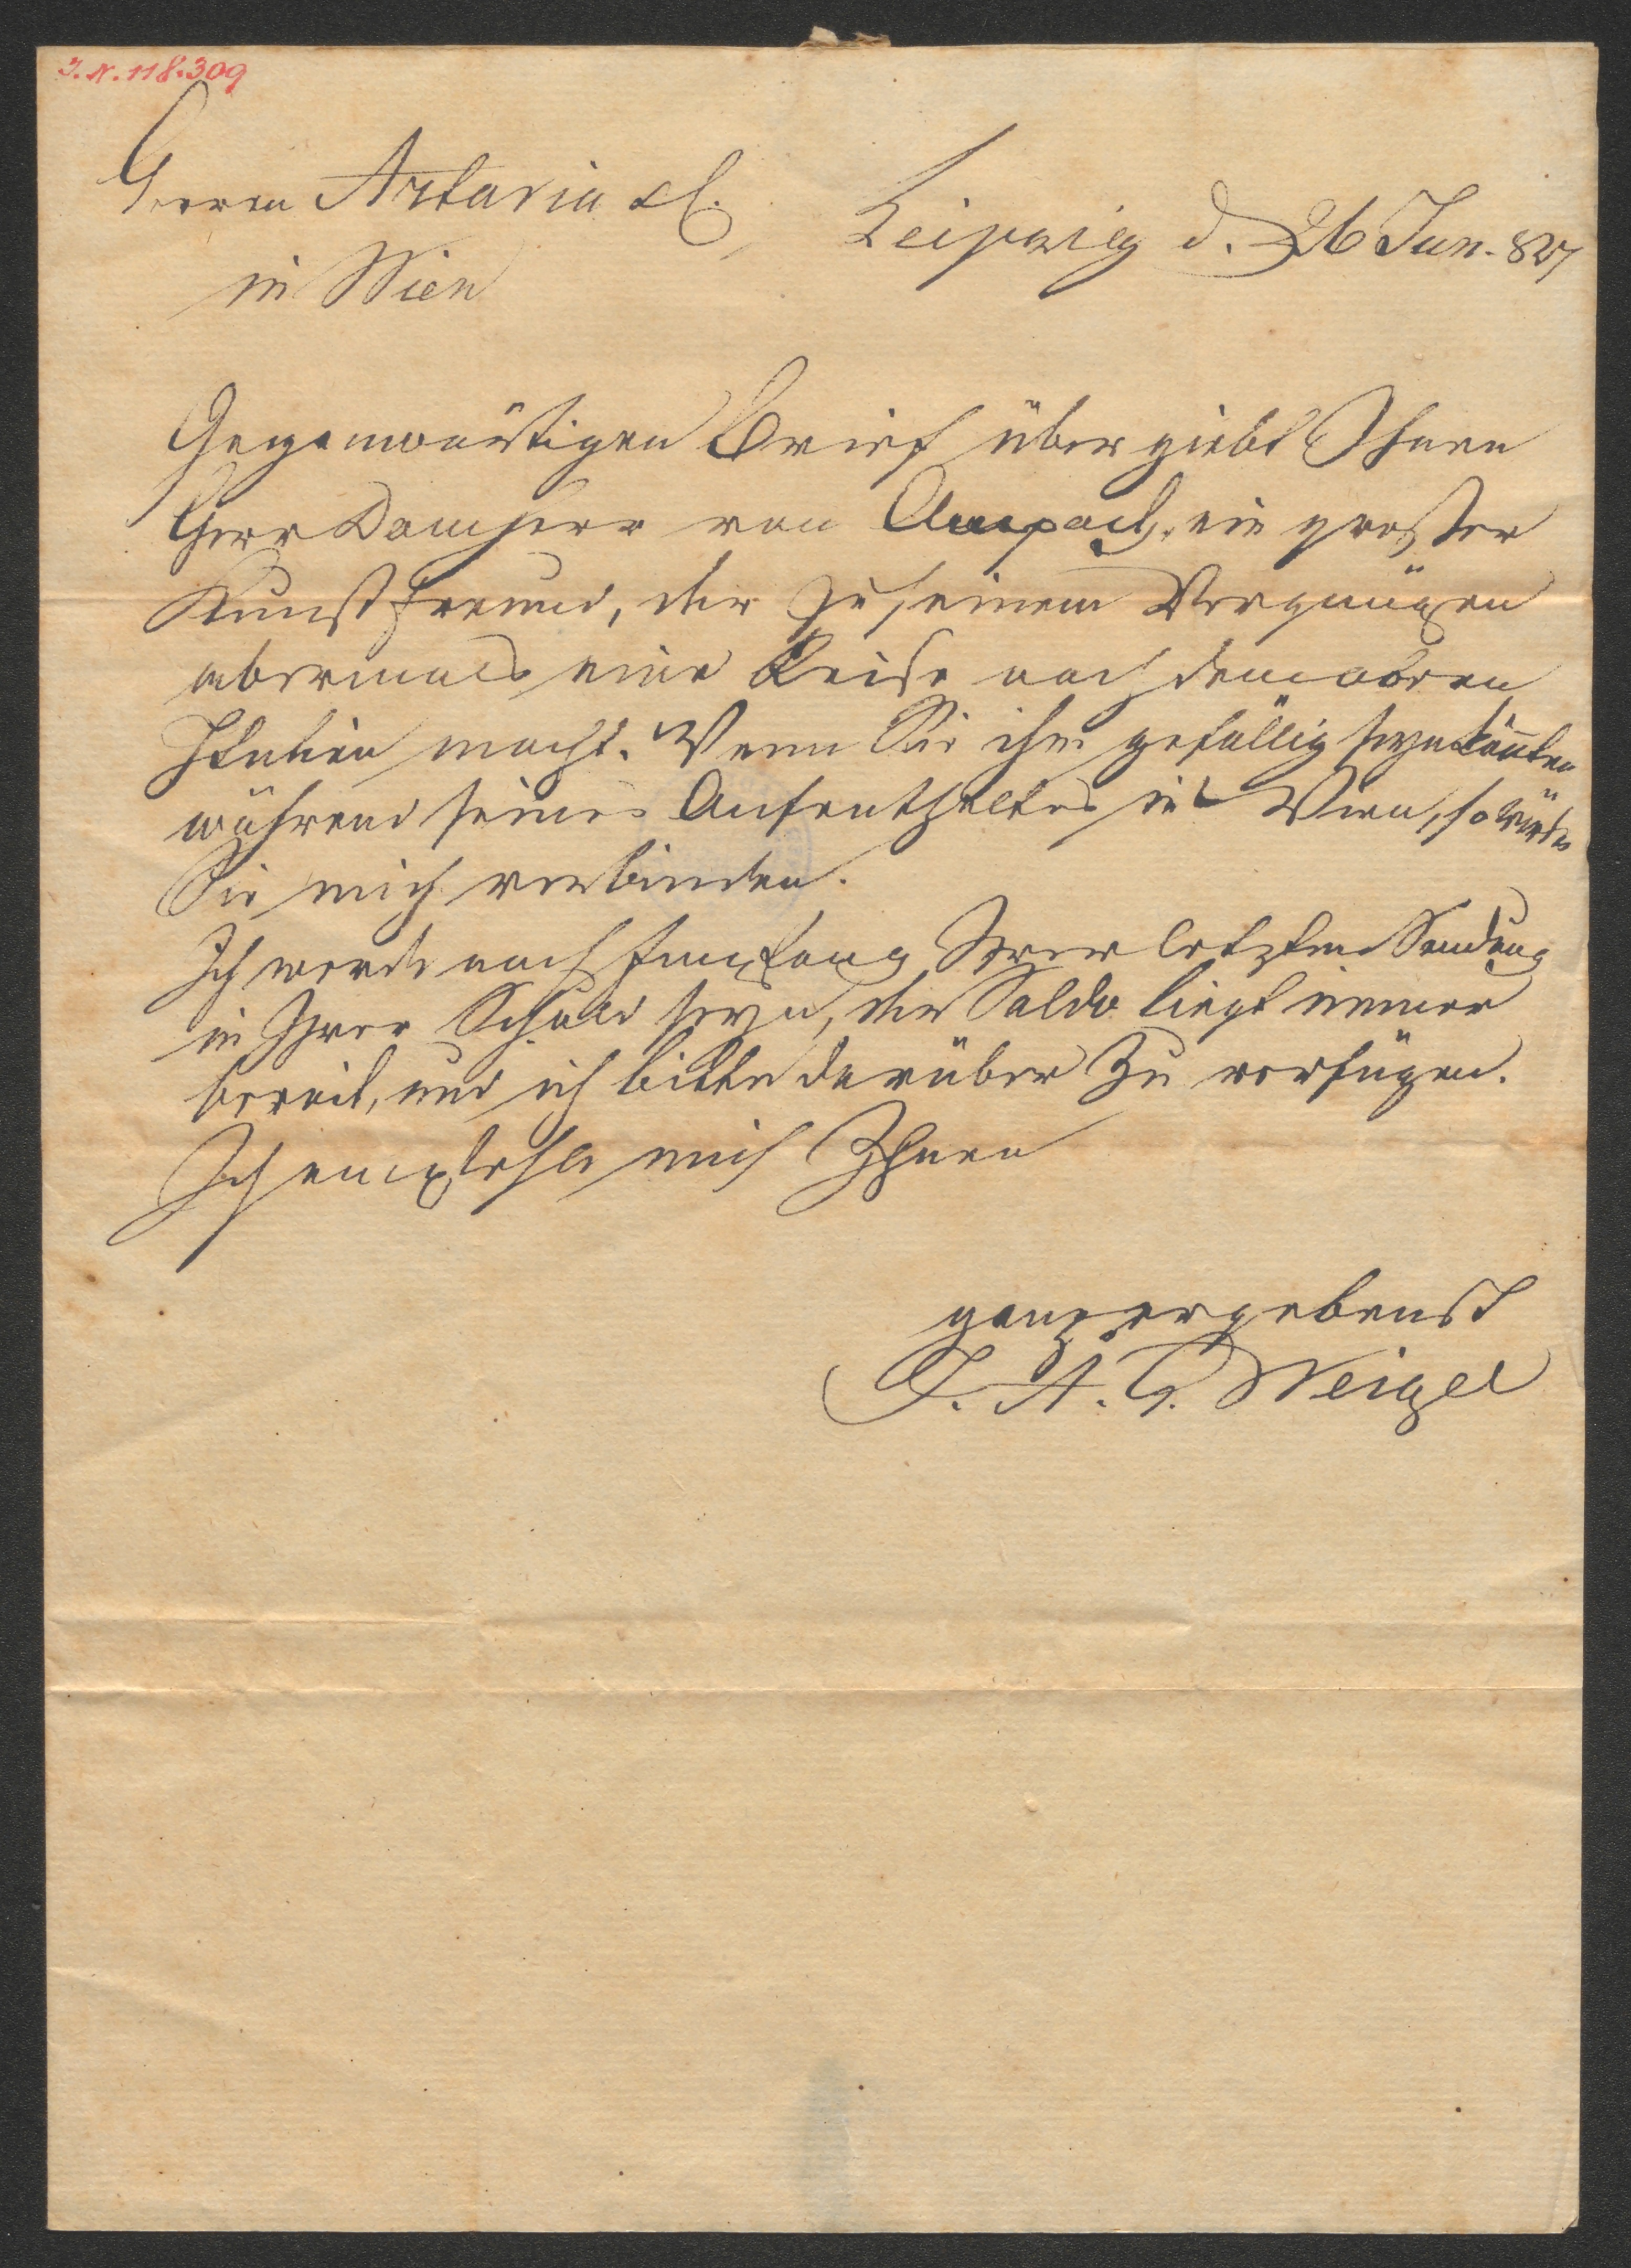 J. N. 118.309
Herren Artaria & C.
Leipzig d. 26 Jun. 827
in Wien
Gegenwärtigen Brief übergiebt Ihnen
Herr Domherr von Ampach, ein großer
Kunstfreund, der zu seinem Vergnügen
abermals eine Reise nach dem obern
Italien macht. Wenn Sie ihm gefällig seyn könnten
während seines Aufenthaltes in Wien, so würden
Sie mich verbinden.
Ich werde nach Empfang Ihrer letzten Sendung
in Ihrer Schuld seyn, der Saldo liegt immer
bereit, und ich bitte darüber zu verfügen.
Ich empfehle mich Ihnen
ganz ergebenst
J. A. G. Weigel